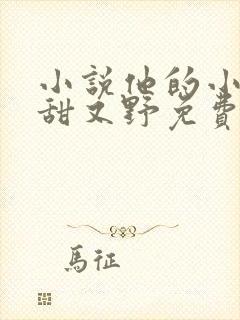 小說他的小
甜又野免費
馬征